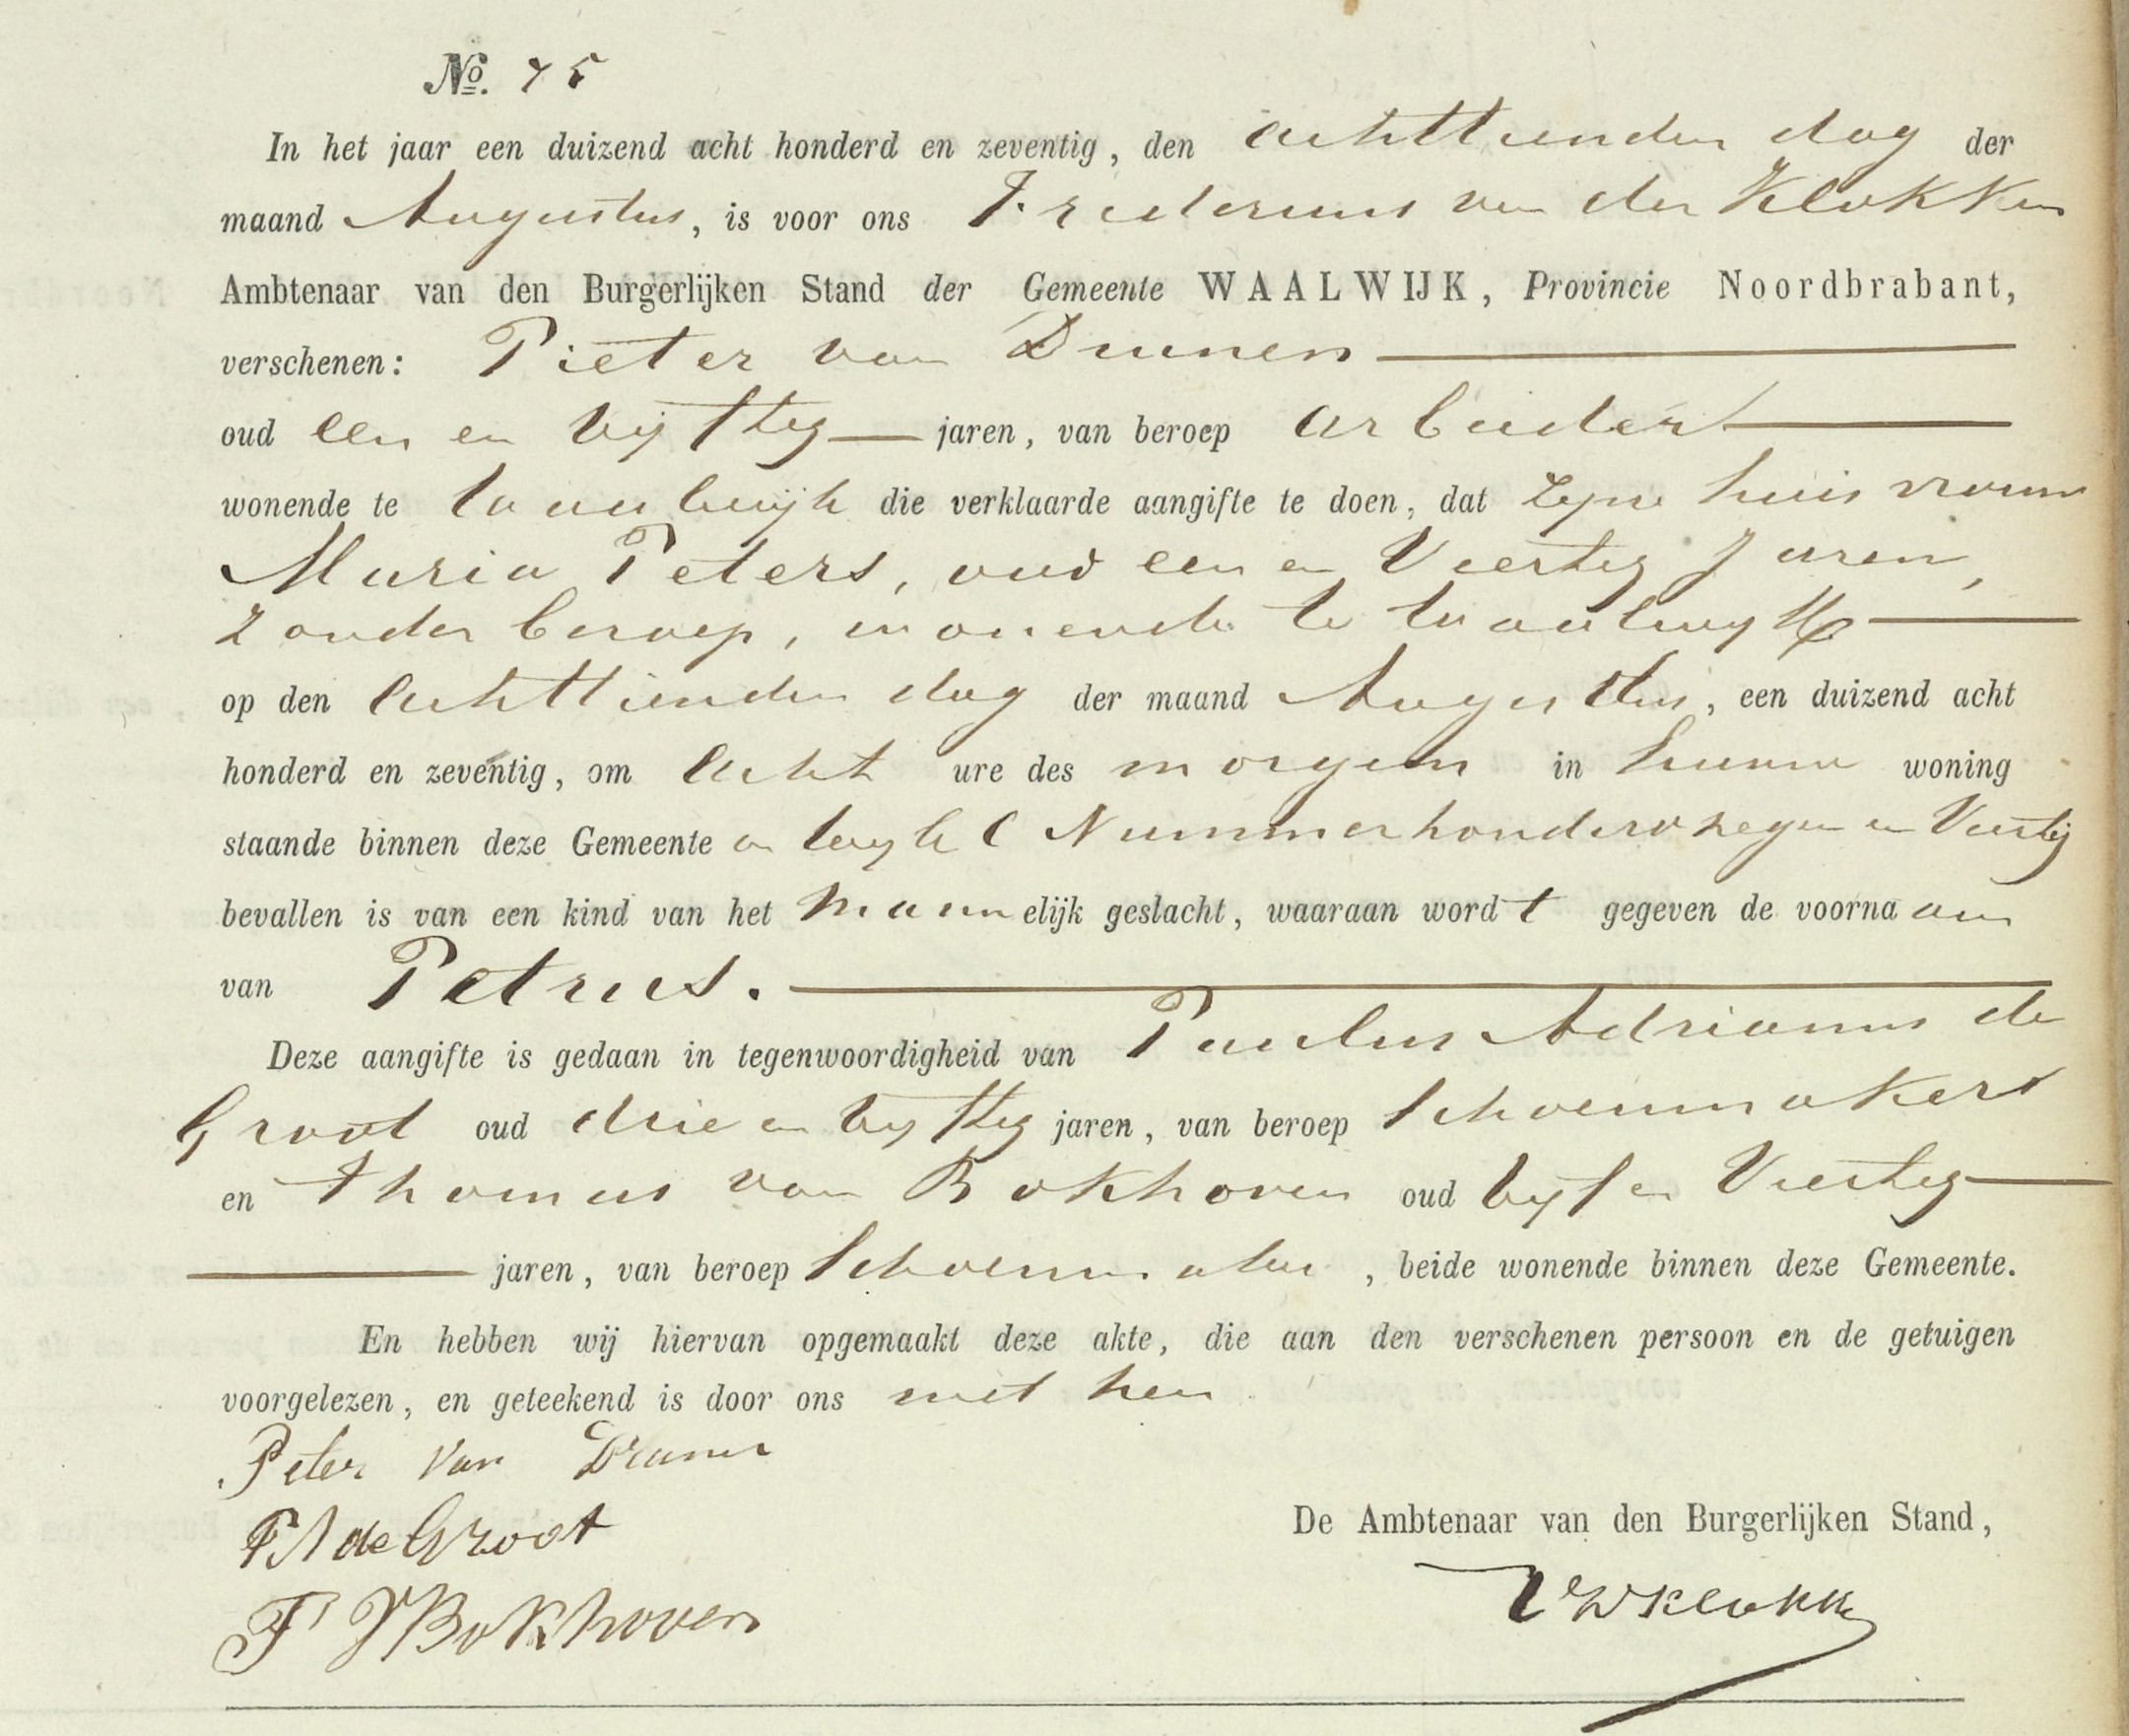 No. 75
In het jaar een duizend acht honderd en zeventig, den achttienden dag der
maand Augustus, is voor ons Fredericus van der Klokken
Ambtenaar van den Burgerlijken Stand der Gemeente WAALWIJK, Provincie Noordbrabant,
verschenen: Pieter van Drunen
oud een en vijftig jaren, van beroep arbeider
wonende te Waalwijk die verklaarde aangifte te doen, dat zijne huisvrouw
Maria Peters, oud een en Veertig Jaren,
zonder beroep, wonende te Waalwijk
op den achttienden dag der maand Augustus, een duizend acht
honderd en zeventig, om acht ure des morgens in hunne woning
staande binnen deze Gemeente in wijk C Nummer honderd negen en Veertig
bevallen is van een kind van het mannelijk geslacht, waaraan wordt gegeven de voornaam
van Petrus.
Deze aangifte is gedaan in tegenwoordigheid van Paulus Adrianus de
Groot oud drie en vijftig jaren, van beroep Schoenmaker
en Thomas van Bokhoven oud vijf en Veertig
jaren, van beroep Schoenmaker, beide wonende binnen deze Gemeente.
En hebben wij hiervan opgemaakt deze akte, die aan den verschenen persoon en de getuigen
voorgelezen, en geteekend is door ons met hen
Peter Van Drunen
PA de Groot
T V Bokhoven
De Ambtenaar van den Burgerlijken Stand,